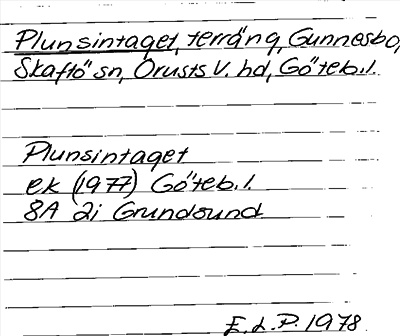 Plunsintaget, terräng, Gunnesbo,
Skaftö sn, Orusts V. hd, Göteb. l.
Plunsintaget
ek (1977) Göteb. l.
8A 2i Grundsund
E. L. P. 1978